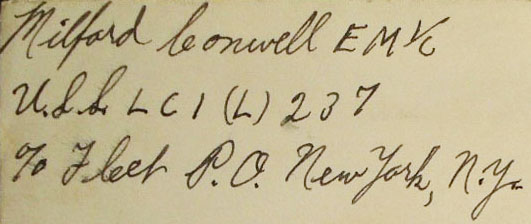 Milford Conwell EM 1/c
U.S.S. LCI (L) 237
℅ Fleet P.O. New York, N.Y.